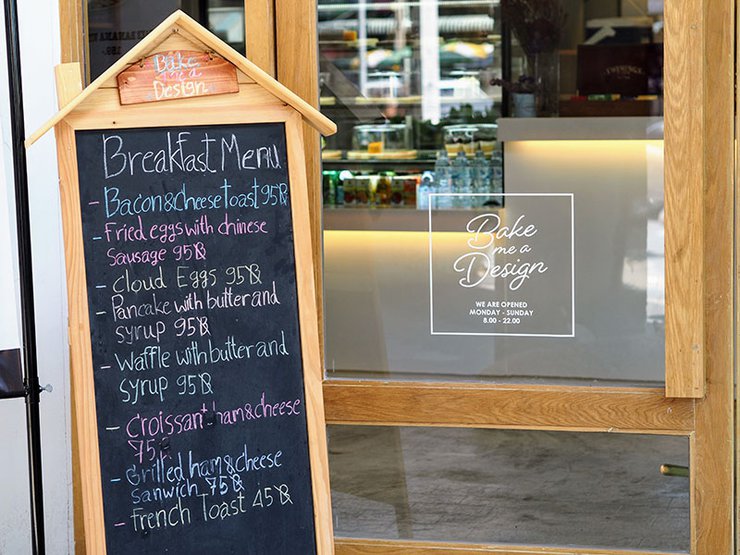 Bake
me a
Design
Breakfast Menu
- Bacon & cheese toast 95฿
- Fried eggs with chinese
Sausage 95฿
- cloud Eggs 95฿
- Pancake with butter and
syrup 95฿
- Waffle with butter and
syrup 95฿
- Croissant ham & cheese
75.-
- Grilled ham & cheese
sanwich 75฿
- French Toast 45฿
Bake
me a
Design
WE ARE OPENED
MONDAY - SUNDAY
8.00 - 22.00